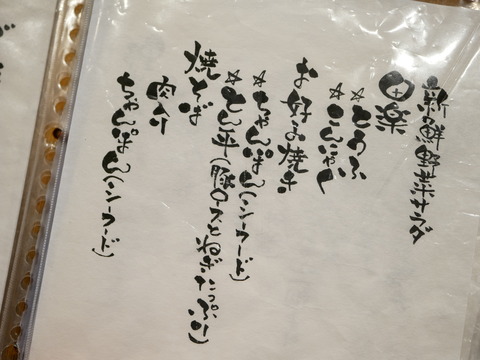 新鮮野菜サラダ
田楽
☆とうふ
☆こんにゃく
お好み焼き
☆ちゃんぽん(シーフード)
☆とん平(豚ロースとねぎたっぷり)
焼そば
肉入り
ちゃんぽん(シーフード)